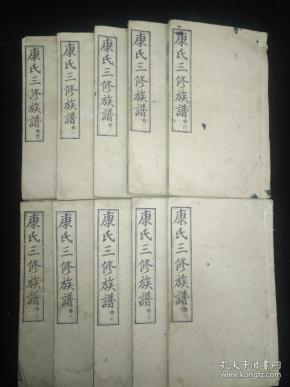 康氏三修族譜
康氏三修族譜
康氏三修族譜
康氏三修族譜
康氏三修族譜
康氏三修族譜
康氏三修族譜
康氏三修族譜
康氏三修族譜
康氏三修族譜
孔夫子旧书网